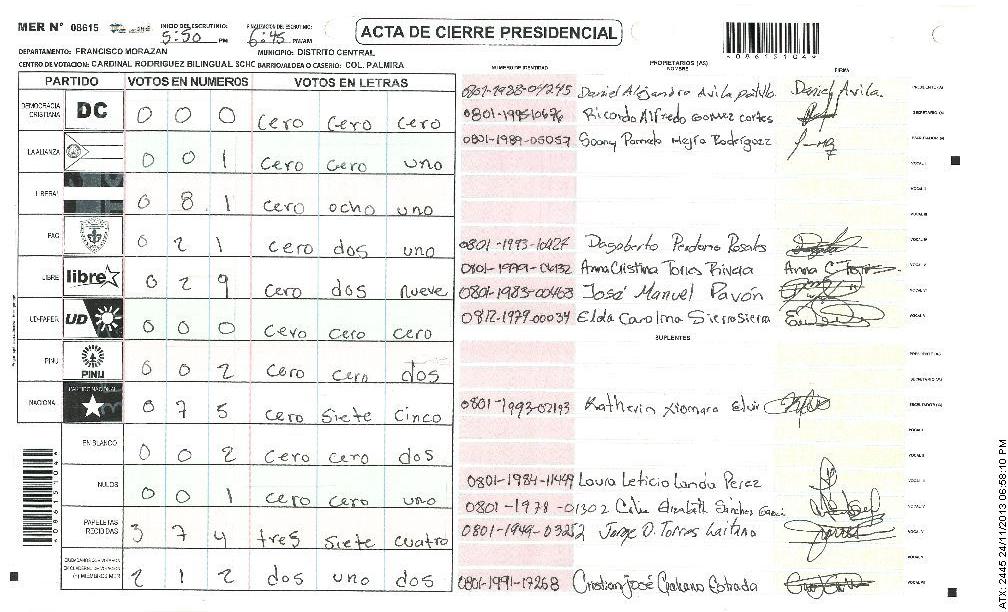 MER N° 08615
INICIO DEL ESCRUTINIO: 5:50 PM
FINALIZACION DEL ESCRUTINIO: 6:45 PM/AM
ACTA DE CIERRE PRESIDENCIAL
*08615104*
DEPARTAMENTO: FRANCISCO MORAZAN MUNICIPIO: DISTRITO CENTRAL
CENTRO DE VOTACION: CARDINAL RODRIGUEZ BILINGUAL SCHC BARRIO/ALDEA O CASERIO: COL. PALMIRA
PARTIDO VOTOS EN NUMEROS VOTOS EN LETRAS
DEMOCRACIA CRISTIANA DC 0 0 0 cero cero cero
LA ALIANZA 0 0 1 cero cero uno
LIBERAL 0 8 1 cero ocho uno
PAC 0 2 1 cero dos uno
LIBRE libre 0 2 9 cero dos nueve
UD-FAPER UD 0 0 0 cero cero cero
PINU PINU 0 0 2 cero cero dos
NACIONAL PARTIDO NACIONAL 0 7 5 cero siete cinco
EN BLANCO 0 0 2 cero cero dos
NULOS 0 0 1 cero cero uno
PAPELETAS RECIBIDAS 3 7 4 tres siete cuatro
2 1 2 dos uno dos
NUMERO DE IDENTIDAD PROPIETARIOS (AS) NOMBRE FIRMA
0801-1988-04245 Daniel Alejandro Avila Daniel Avila. PRESIDENTE(A)
0801-1995 Ricardo Alfredo Gomez Cortes SECRETARIO (A)
0801-1989-05057 Mejia Rodriguez ESCRUTADOR (A)
VOCAL I
VOCAL II
VOCAL III
0801-1993- Dagoberto Perdomo Rosales VOCAL IV
0801-1979-06132 Anna Cristina Torres Rivera Anna C. Torres VOCAL V
0801-1983-00463 José Manuel Pavón VOCAL VI
0812-1979-00034 Elda Carolina Sierra Sierra
SUPLENTES
PRESIDENTE (A)
SECRETARIO (A)
0801-1993-02193 Katherin Xiomara Elvir ESCRUTADOR (A)
VOCAL I
VOCAL II
0801-1984-11449 Laura Leticia Landa Perez VOCAL III
0801-1978-01302 Elizabeth Sanchez Garcia VOCAL IV
0801-1949-03252 Jorge D. Torres Laitano VOCAL V
VOCAL VI
0801-1991-17268 Cristian José Estrada VOCAL VII
*08615104*
ATX-2445 24/11/2013 06:58:10 PM